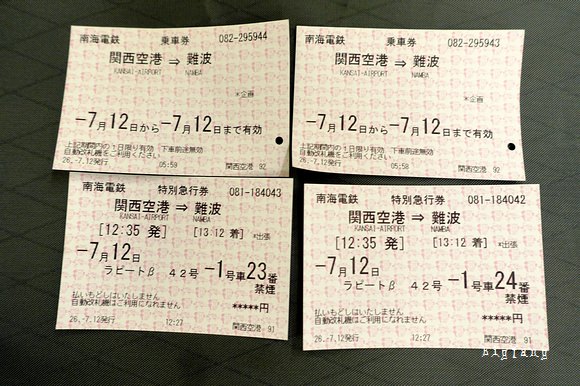 南海電鉄 乗車券 082-295944
関西空港 ⇒ 難波
KANSAI-AIRPORT NAMBA
*企画
-7月12日から -7月12日まで有効
上記期間内の1日限り有効 下車前途無効
自動改札機をご利用ください
26.-7.12発行 05:59 関西空港 92
南海電鉄 乗車券 082-295943
関西空港 ⇒ 難波
KANSAI-AIRPORT NAMBA
*企画
-7月12日から -7月12日まで有効
上記期間内の1日限り有効 下車前途無効
自動改札機をご利用ください
26.-7.12発行 05:58 関西空港 92
南海電鉄 特別急行券 081-184043
関西空港 ⇒ 難波
KANSAI-AIRPORT NAMBA
[12:35 発] [13:12 着] *出張
-7月12日
ラピートβ 42号 -1号車23番
禁煙
*****円
払いもどしはいたしません
自動改札機はご利用になれません
26.-7.12発行 12:27 関西空港 91
南海電鉄 特別急行券 081-184042
関西空港 ⇒ 難波
KANSAI-AIRPORT NAMBA
[12:35 発] [13:12 着] *出張
-7月12日
ラピートβ 42号 -1号車24番
禁煙
*****円
払いもどしはいたしません
自動改札機はご利用になれません
26.-7.12発行 12:27 関西空港 91